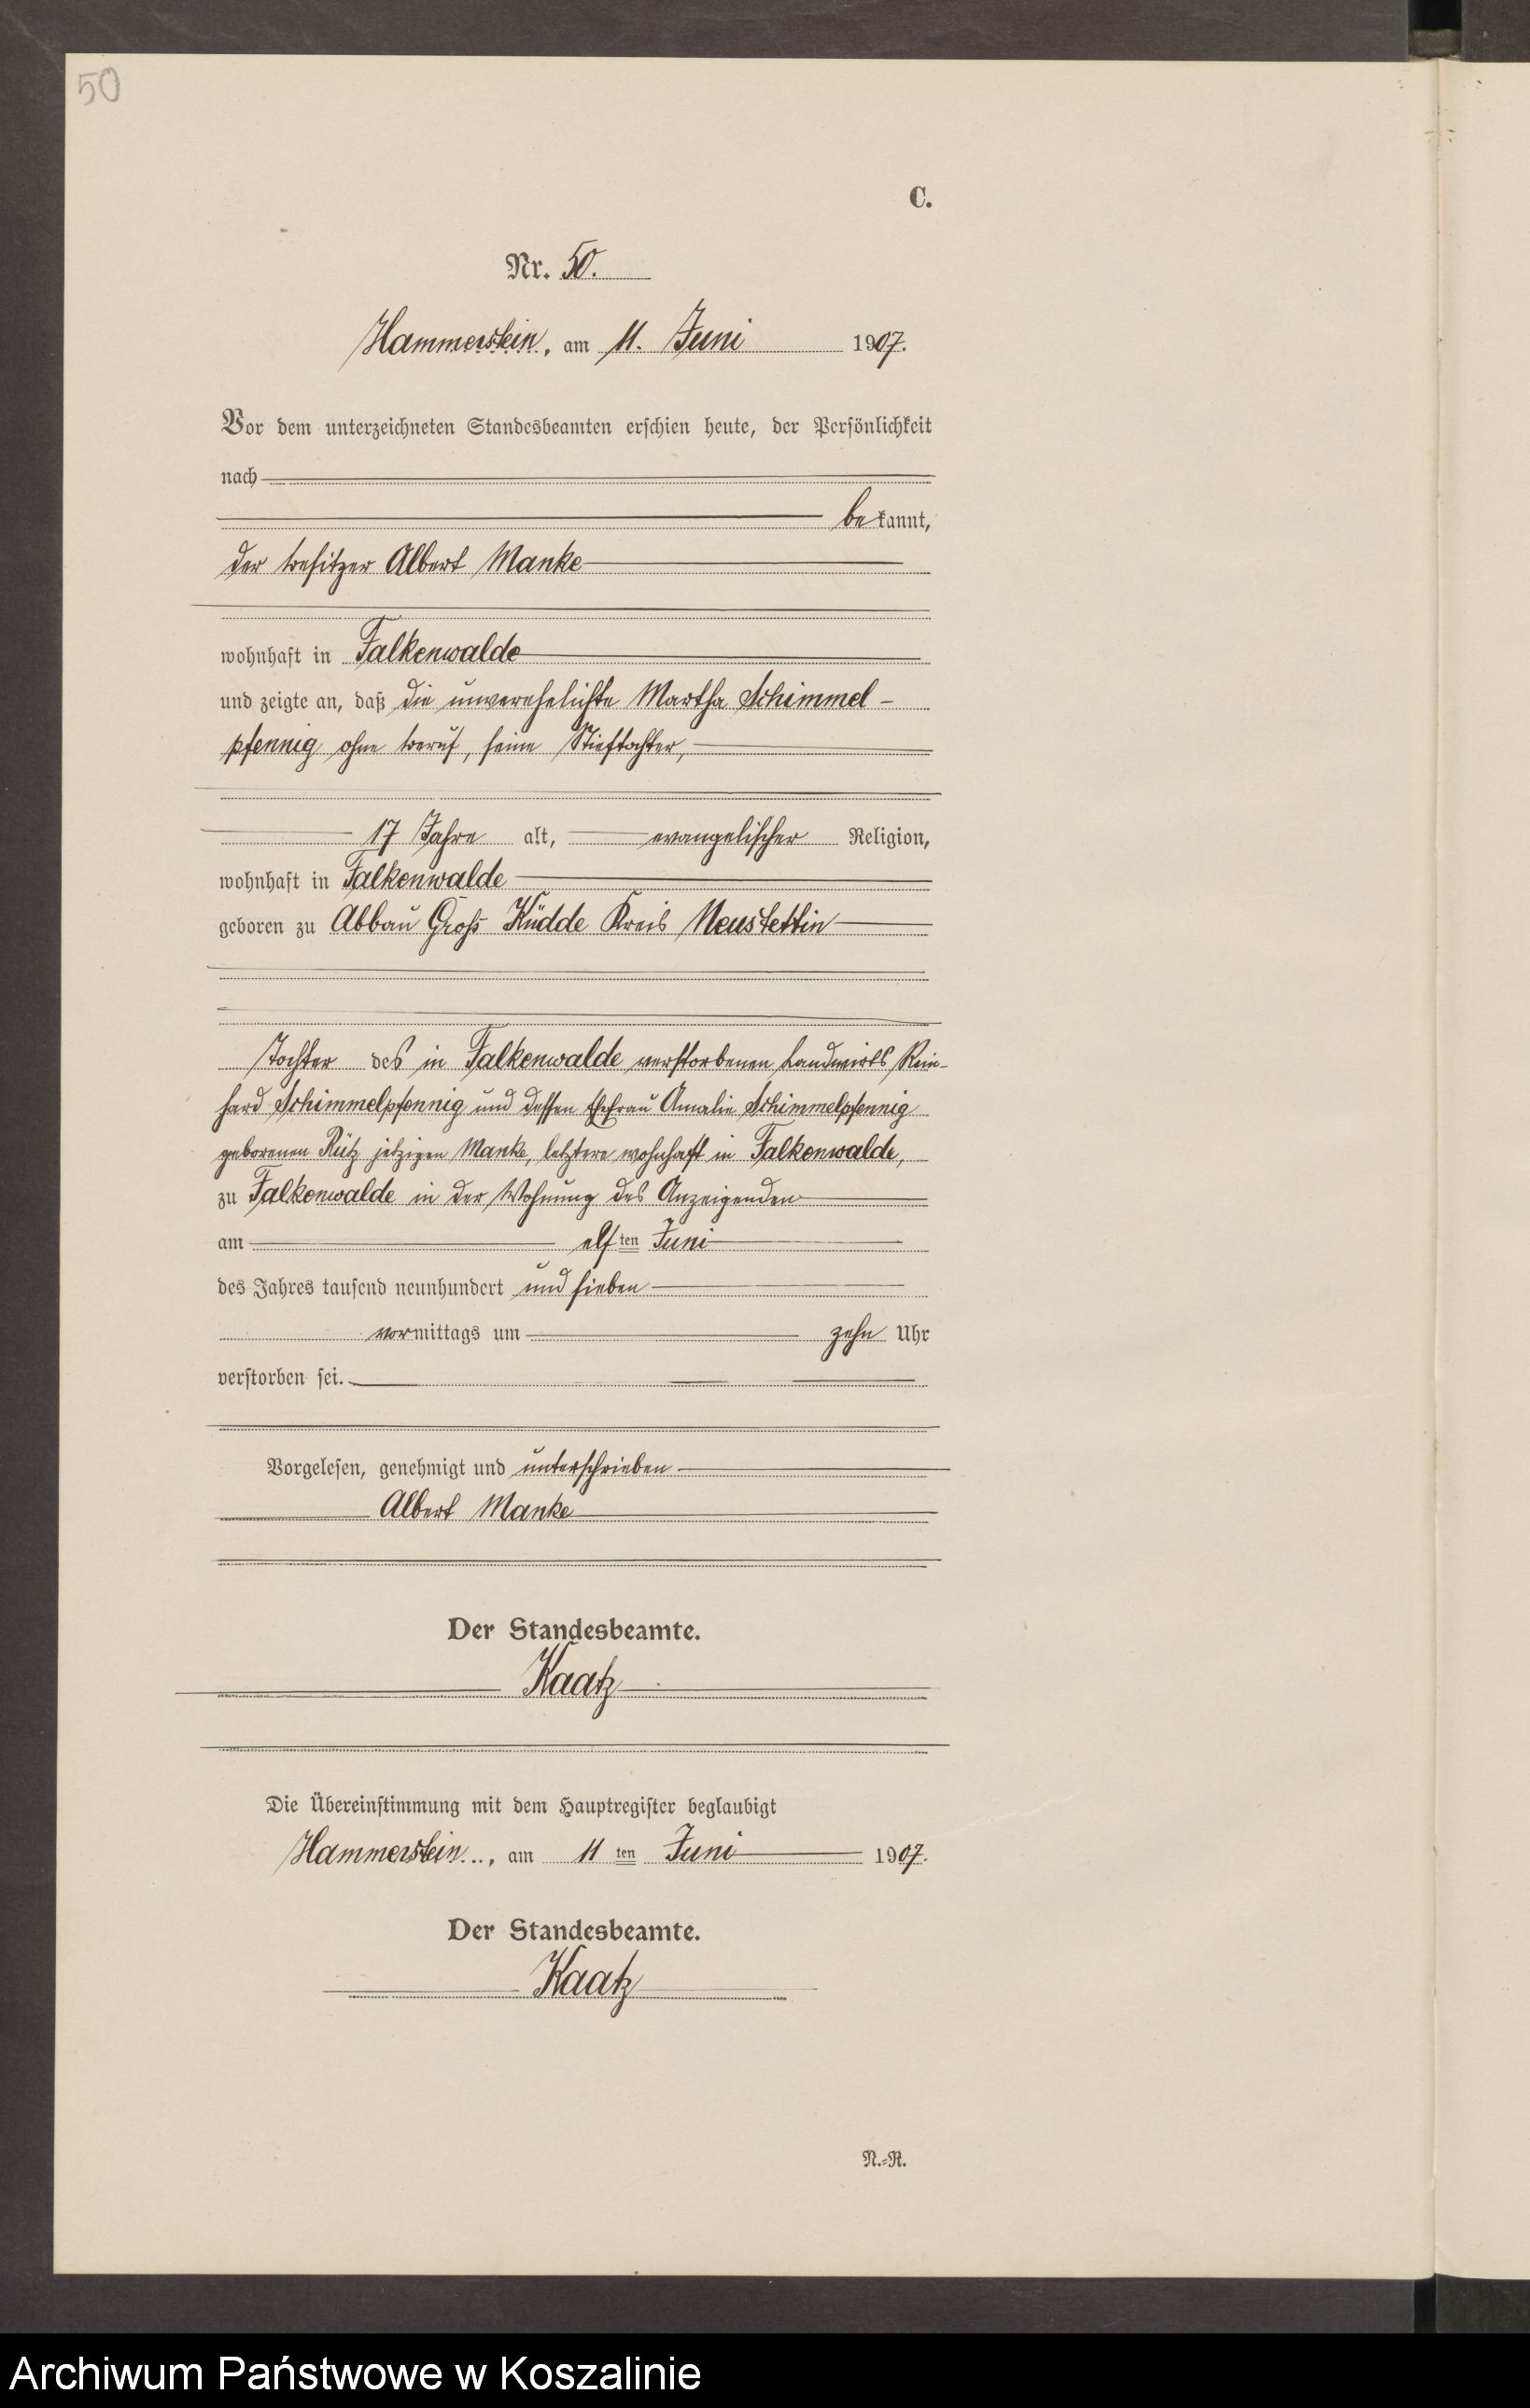 50
C.
Nr. 50.
Hammerstein, am 11. Juni 1907.
Vor dem unterzeichneten Standesbeamten erschien heute, der Persönlichkeit
nach
bekannt,
der Besitzer Albert Manke
wohnhaft in Falkenwalde
und zeigte an, daß die unverehelichte Martha Schimmel-
pfennig ohne Beruf, seine Stieftochter,
17 Jahre alt, evangelischer Religion,
wohnhaft in Falkenwalde
geboren zu Abbau Groß Küdde Kreis Neustettin
Tochter des in Falkenwalde verstorbenen Landwirts Rein-
hard Schimmelpfennig und dessen Ehefrau Amalie Schimmelpfennig
geborenen Rütz jetzigen Manke, letztere wohnhaft in Falkenwalde,
zu Falkenwalde in der Wohnung des Anzeigenden
am elften Juni
des Jahres tausend neunhundert und sieben
vormittags um zehn Uhr
verstorben sei.
Vorgelesen, genehmigt und unterschrieben
Albert Manke
Der Standesbeamte.
Kaatz
Die Übereinstimmung mit dem Hauptregister beglaubigt
Hammerstein, am 11ten Juni 1907.
Der Standesbeamte.
Kaatz
N.-R.
Archiwum Państwowe w Koszalinie